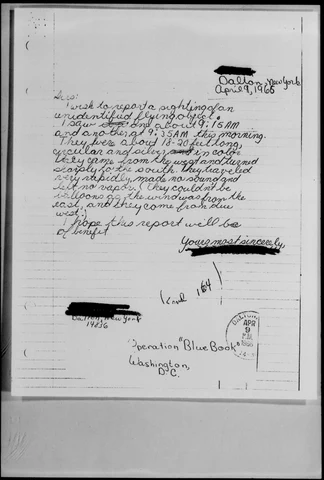 Dalton, New York
April 9, 1966
Sirs:
I wish to report a sighting of an
unidentified flying object.
I saw one about 9:15 AM
and another at 9:35AM this morning.
They were about 18-20 feet long,
circular and silver in color
They came from the west and turned
sharply to the south. They traveled
very rapidly, made no sound and
left no vapor. They couldn't be
balloons as the wind was from the
east, and they came from due
west.
I hope this report will be
of benefit
Yours most sincerely,
164
Dalton, New York
14836
DALTON
APR
9
1966
"Operation "Blue Book"
Washington,
D.C.